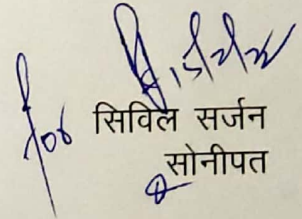 for सिविल सर्जन
सोनीपत